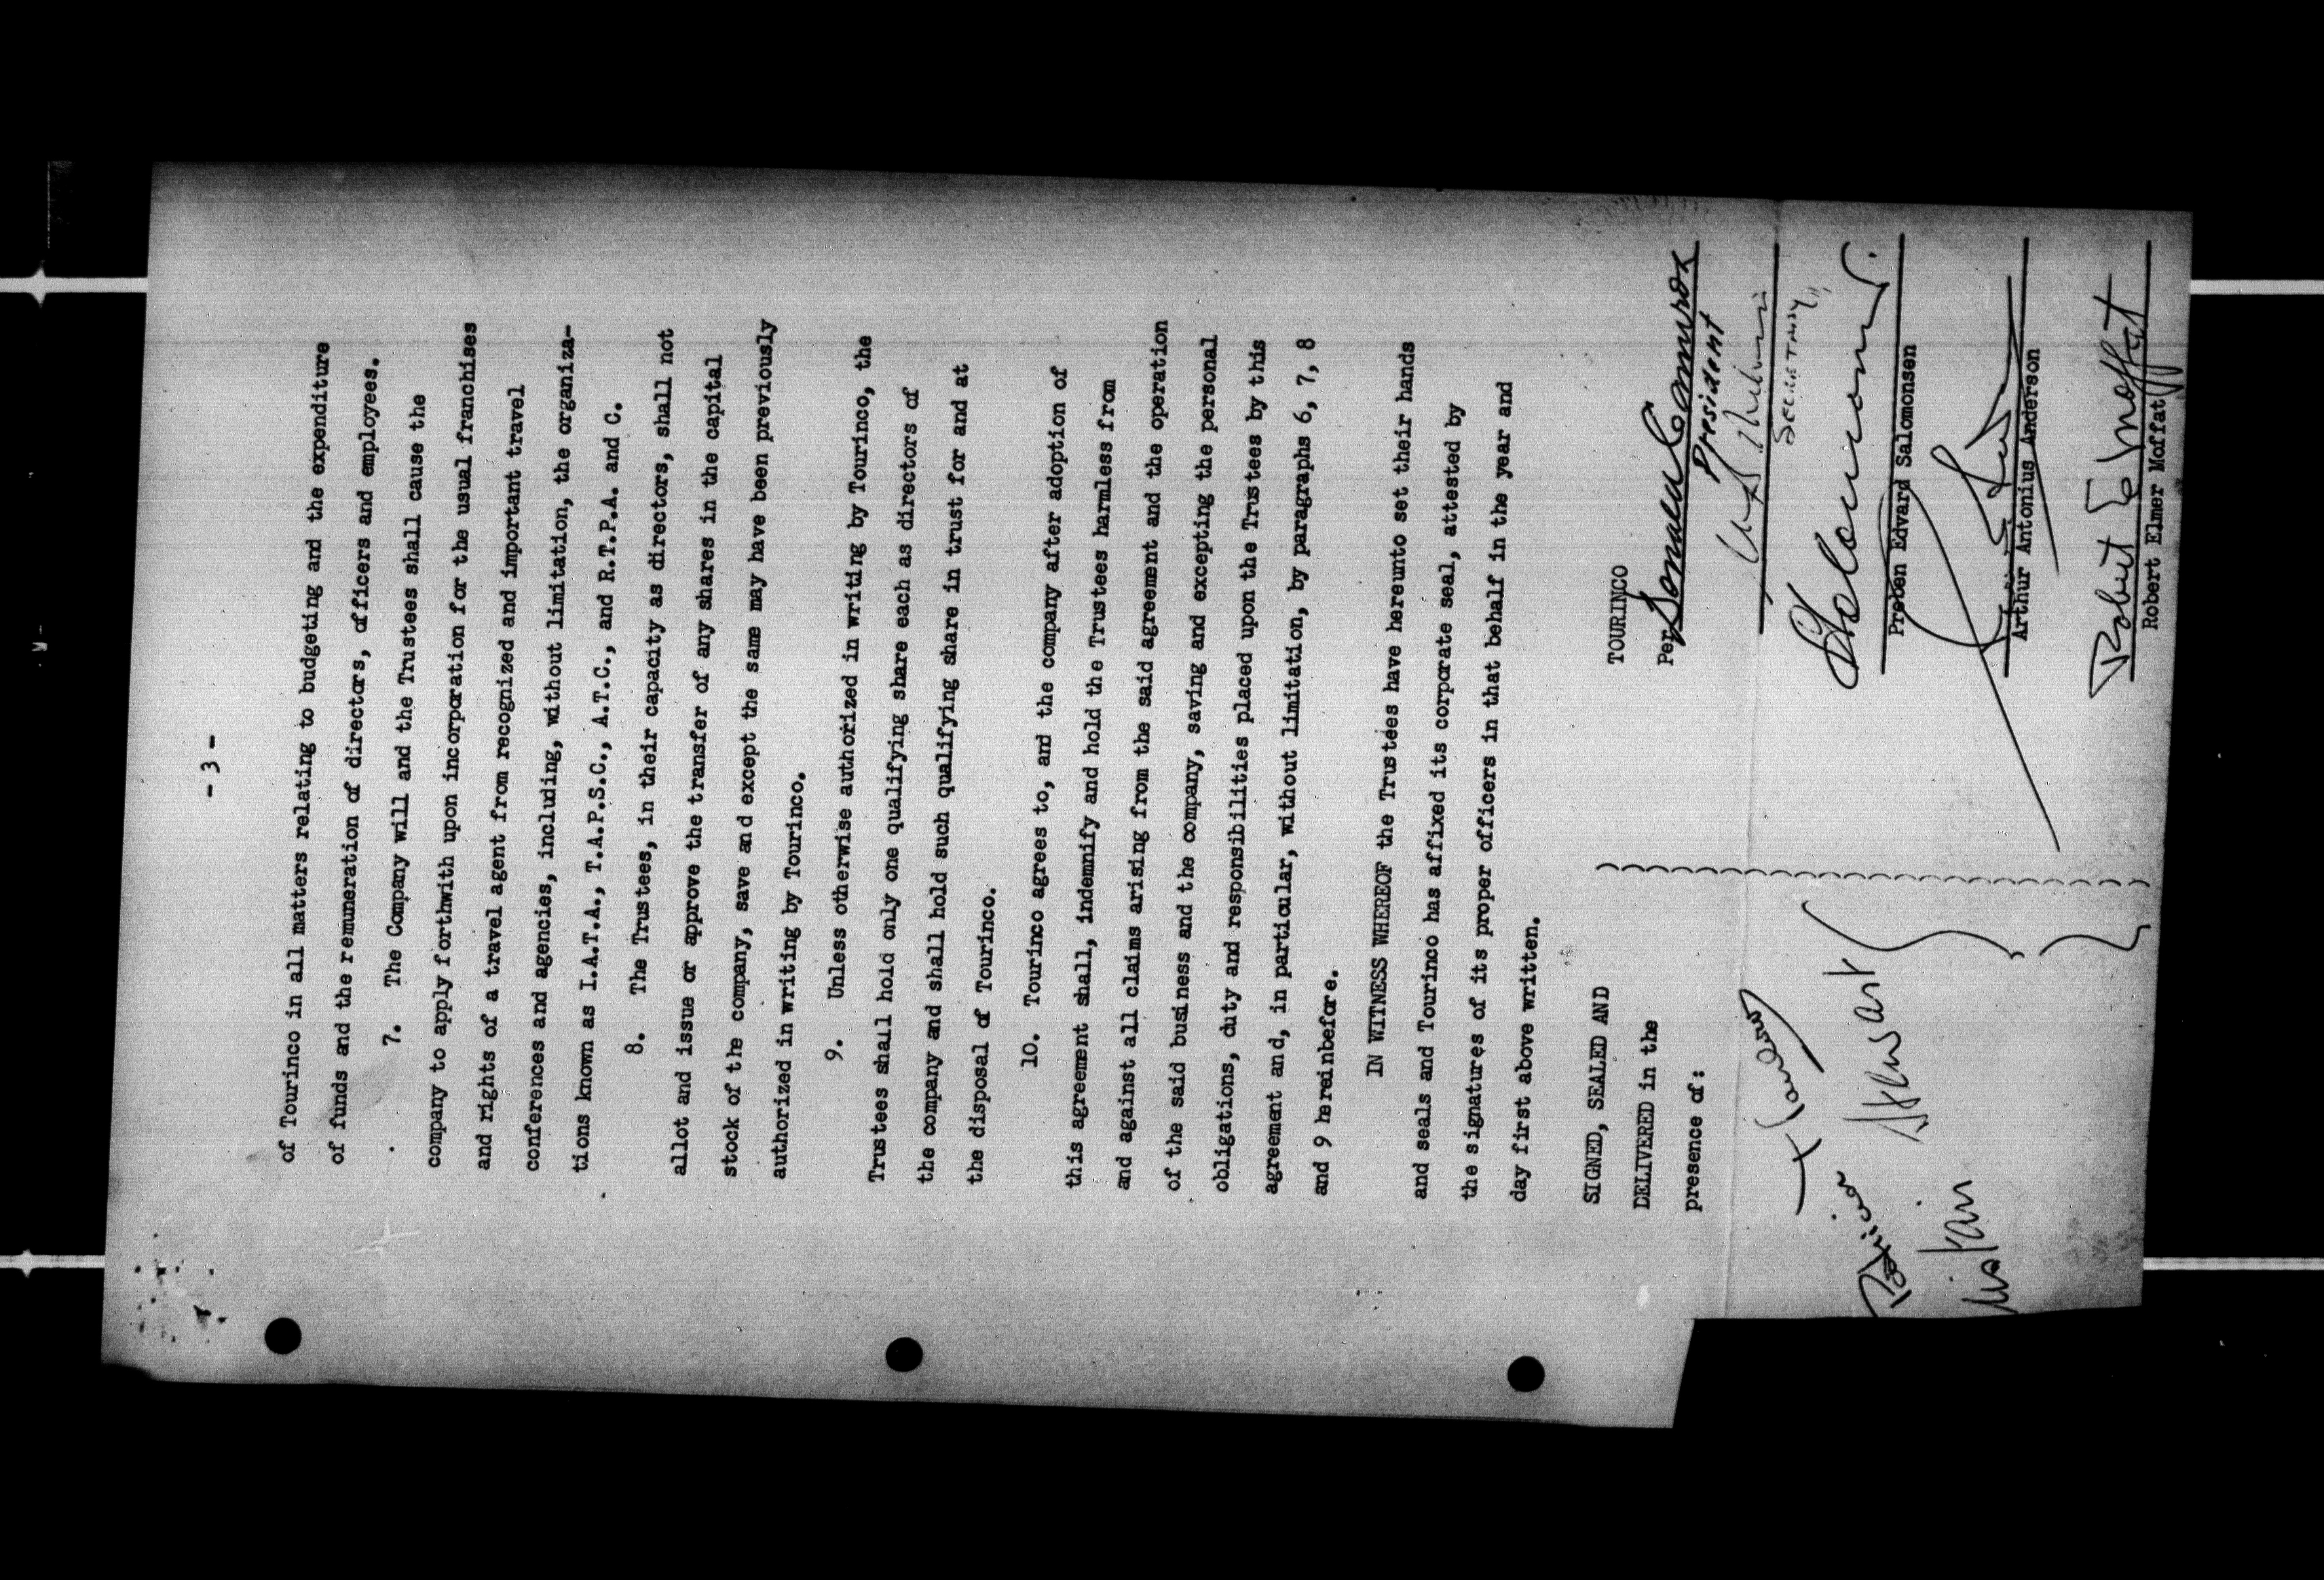 - 3 -
of Tourinco in all matters relating to budgeting and the expenditure
of funds and the remuneration of directors, officers and employees.
7. The Company will and the Trustees shall cause the
company to apply forthwith upon incorporation for the usual franchises
and rights of a travel agent from recognized and important travel
conferences and agencies, including, without limitation, the organiza-
tions known as I.A.T.A., T.A.P.S.C., A.T.C., and R.T.P.A. and C.
8. The Trustees, in their capacity as directors, shall not
allot and issue or approve the transfer of any shares in the capital
stock of the company, save and except the same may have been previously
authorized in writing by Tourinco.
9. Unless otherwise authorized in writing by Tourinco, the
Trustees shall hold only one qualifying share each as directors of
the company and shall hold such qualifying share in trust for and at
the disposal of Tourinco.
10. Tourinco agrees to, and the company after adoption of
this agreement shall, indemnify and hold the Trustees harmless from
and against all claims arising from the said agreement and the operation
of the said business and the company, saving and excepting the personal
obligations, duty and responsibilities placed upon the Trustees by this
agreement and, in particular, without limitation, by paragraphs 6, 7, 8
and 9 hereinbefore.
IN WITNESS WHEREOF the Trustees have hereunto set their hands
and seals and Tourinco has affixed its corporate seal, attested by
the signatures of its proper officers in that behalf in the year and
day first above written.
SIGNED, SEALED AND
DELIVERED in the
presence of:
TOURINCO
Per
President
SECRETARY
Preben Edvard Salomonsen
Arthur Antonius Anderson
Robert E Moffat
Robert Elmer Moffat